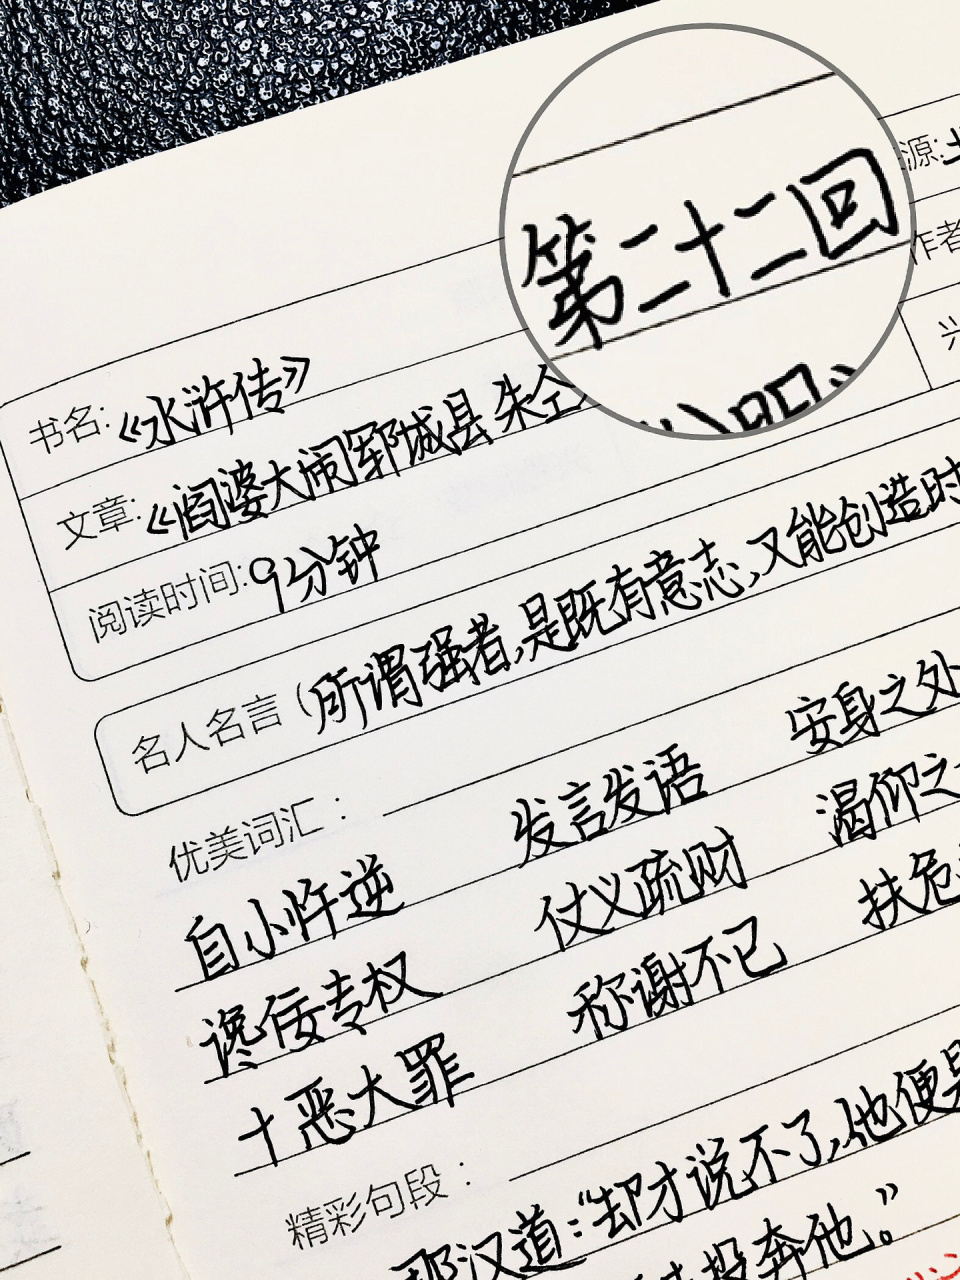 第二十二回
源:
书名:《水浒传》
作者
文章:《阎婆大闹郓城县 朱仝
阅读时间:9分钟
名人名言(所谓强者,是既有意志,又能创造时
优美词汇:
自小忤逆 发言发语 安身之处
谗佞专权 仗义疏财 渴仰之
十恶大罪 称谢不已 扶危
精彩句段:
那汉道:“却才说不了,他便是
投奔他。”